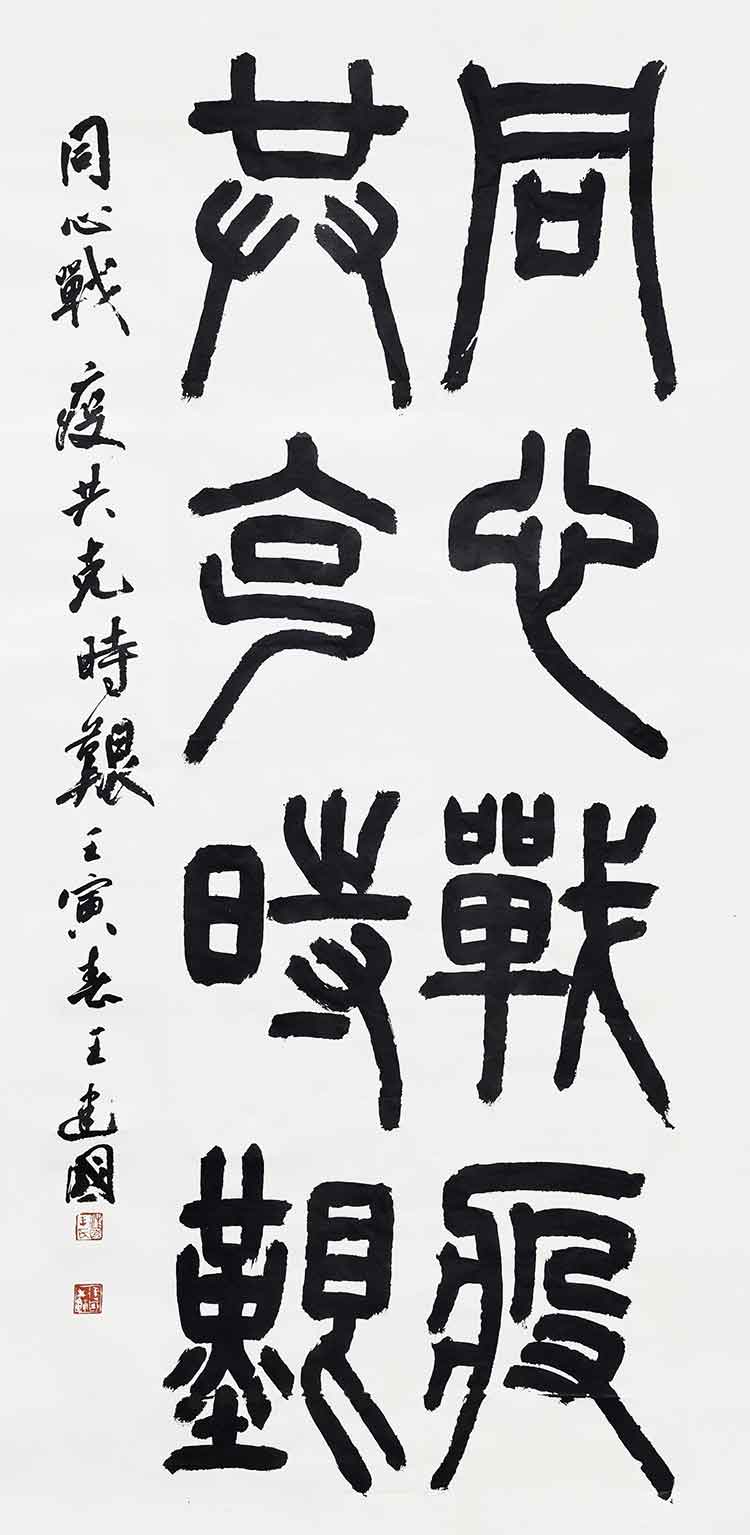 同心戰疫
共克時艱
同心戰疫共克時艱壬寅春王建國